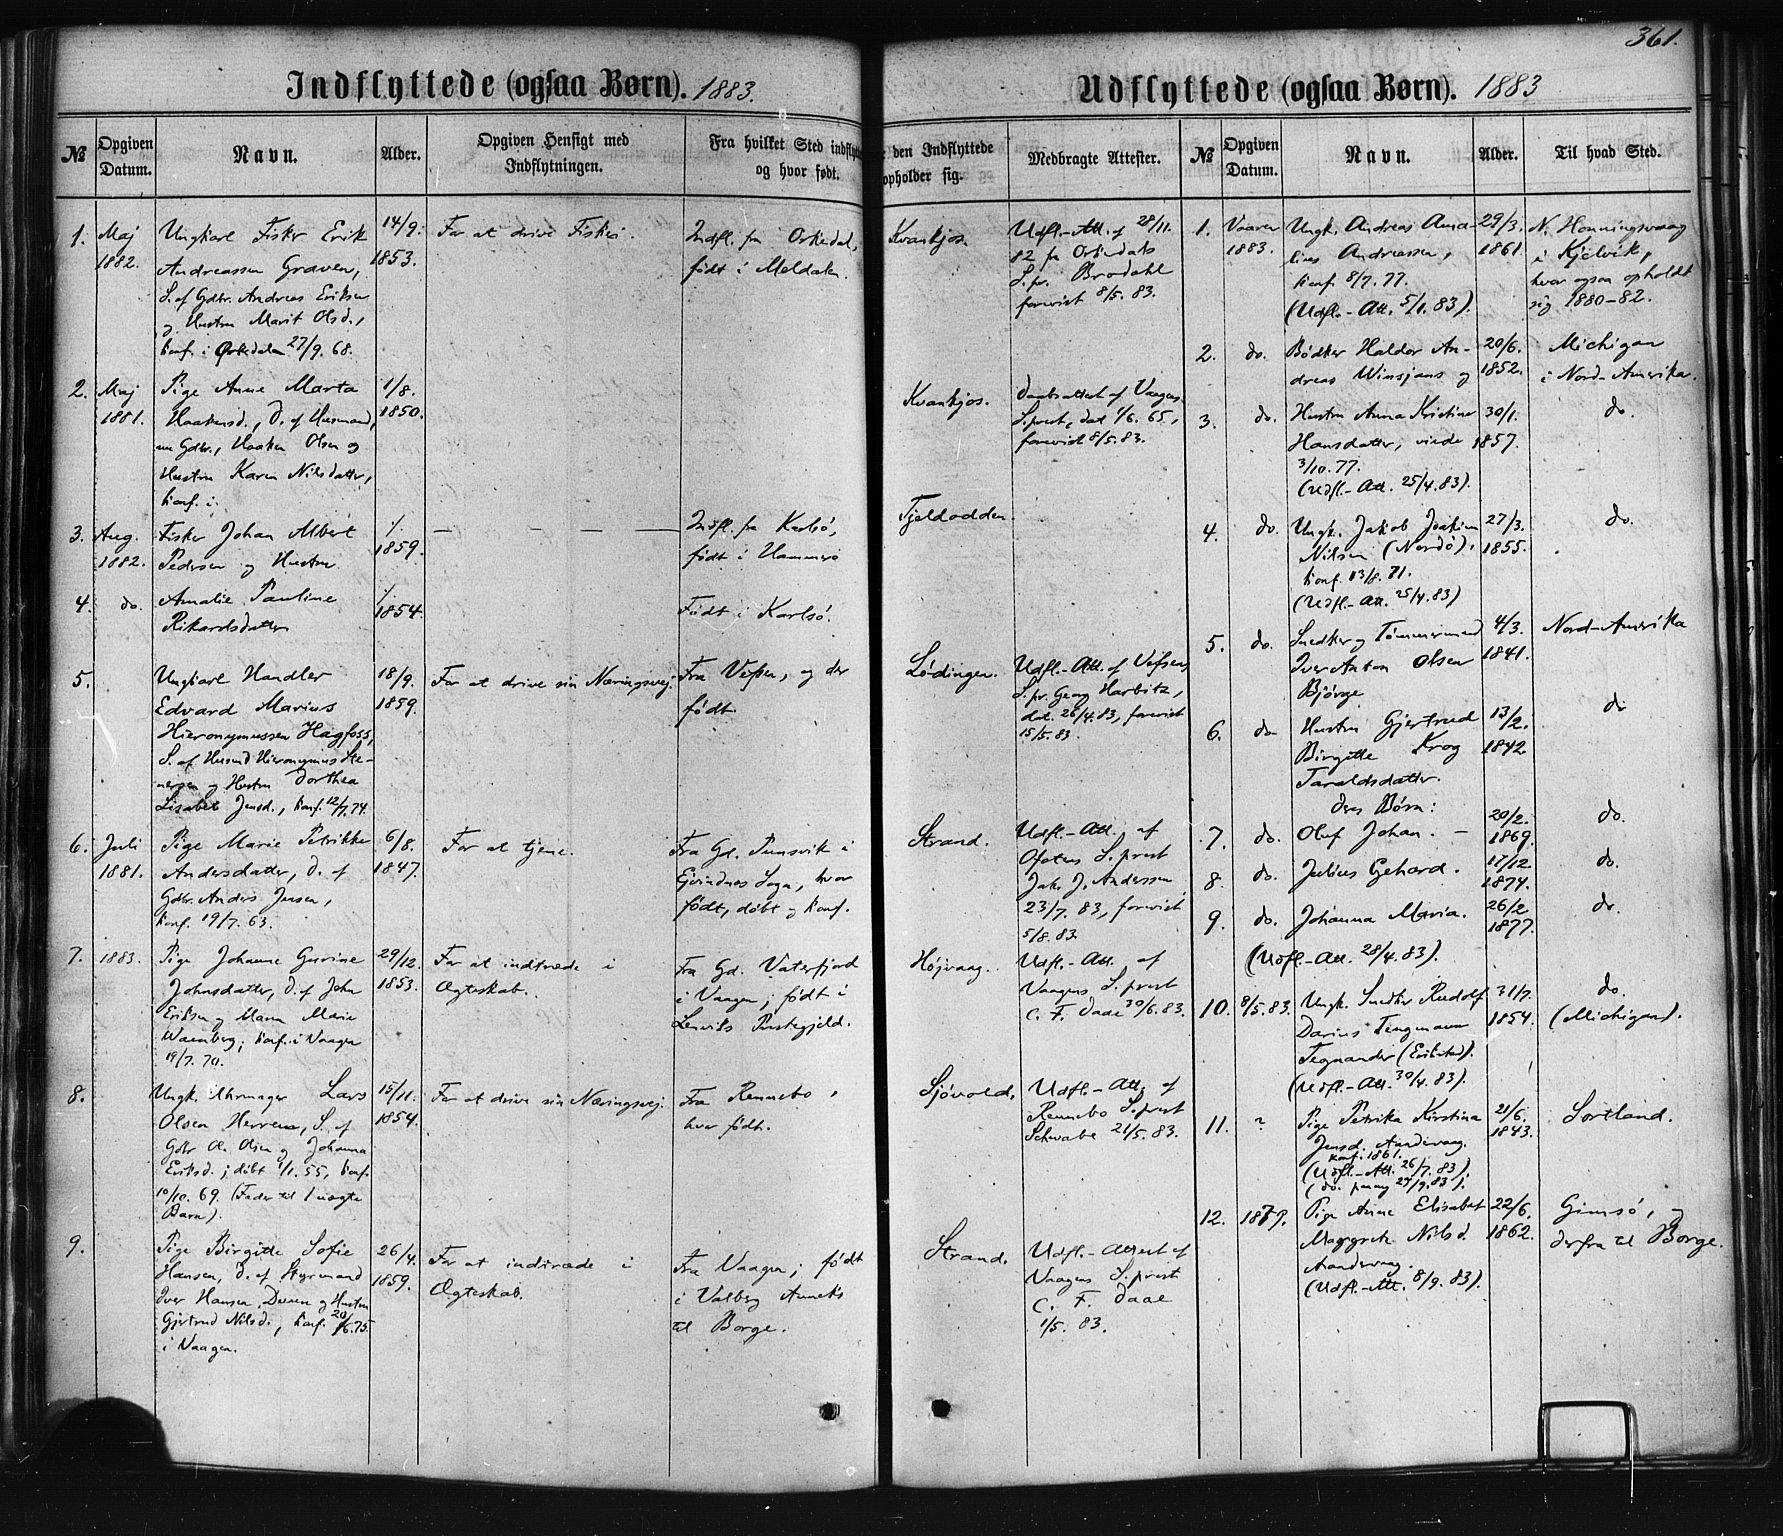 361.
Indflyttede (ogsaa Børn). 1883.
№
Opgiven Datum.
Navn.
Alder.
Opgiven Hensigt med Indflytningen.
Fra hvilket Sted indflyt
og hvor født.
den Indflyttede
opholder sig.
Medbragte Attester.
1.
Maj
1882.
Ungkarl Fisker Erik
Andreassen Graven,
S. af Gdbr. Andreas Eriksen
og Hustru Marit Olsd.,
konf. i Orkedalen 27/9. 68.
14/9.
1853.
For at drive Fiskeri.
Indfl. fra Orkedal,
født i Meldalen.
Kvankjos.
Udfl.-Att. af 28/11.
82 fra Orkedals
S.pr. Brodahl
forevist 8/5. 83.
2.
Maj
1881.
Pige Anne Marta
Haakensd., D. af Husmand,
nu Gdbr., Haaken Olsen og
Hustru Karen Nilsdatter,
konf. i
1/8.
1850.
Kvankjos.
Daabsattest af Vaagens
S.prest, dat. 1/6. 65,
forevist 8/5. 83.
3.
Aug.
1882.
Fisker Johan Albert
Pedersen og Hustru
/
1859.
— — — —
Indfl. fra Karlsö,
født i Hammerö
Fjeldodden.
4.
do.
Amalie Pauline
Rikardsdatter
/
1854.
Født i Karlsö.
5.
Ungkarl Handler
Edvard Marius
Hieronymussen Hagfoss,
S. af Husmd Hieronymus Ste-
nersen og Hustru Dorthea
Lisabet Jensd., konf. 12/7. 74.
18/9.
1859.
For at drive sin Næringsvej.
Fra Vefsen, og der
født.
Lödingen.
Udfl.-Att. af Vefsens
S.pr. Georg Harbitz,
dat. 26/4. 83, forevist
15/5. 83.
6.
Juli
1881.
Pige Marie Petrikke
Andersdatter, D. af
Gdbr. Anders Jensen,
konf. 19/7. 63.
6/8.
1847.
For at tjene.
Fra Gd. Punsvik i
Evindnes Sogn, hvor
født, döbt og konf.
Strand.
Udfl.-Att. af
Ofotens S.prest
Jak. J. Anderssen
23/7. 83, forevist
5/8. 83.
7.
1883.
Pige Johanne Gurine
Johnsdatter, D. af John
Eriksen og Maren Marie
Waenberg; konf. i Vaagen
19/7. 70.
29/12.
1853.
For at indtræde i
Ægteskab.
Fra Gd. Vaterfjord
i Vaagen; født i
Lenviks Prestegjeld.
Højvaag.
Udfl.-Att. af
Vaagens S.prest
C. F. Daae 30/6. 83.
8.
Ungk. Uhrmager Lars
Olsen Herrem, S. af
Gdbr. Ol. Olsen og Johanna
Eriksd.; döbt 1/1. 55, konf.
10/10. 69. (Fader til 1 uægte
Barn).
15/11.
1854.
For at drive sin Næringsvej.
Fra Rennebo,
hvor født.
Sjövold.
Udfl.-Att. af
Rennebo S.prest
Schwabe 21/5. 83.
9.
Pige Birgitte Sofie
Hansen, D. af Styrmand
Iver Hansen Dueen og Hustru
Gjertrud Nilsd., konf. 20/6. 75.
i Vaagen.
26/4.
1859.
For at indtræde i
Ægteskab.
Fra Vaagen; født
i Valberg Anneks
til Borge.
Strand.
Udfl.-Attest af
Vaagens S.prest
C. F. Daae
1/5. 83.
Udflyttede (ogsaa Børn). 1883
№
Opgiven Datum.
Navn.
Alder.
Til hvad Sted.
1.
Vaaren
1883.
Ungk. Andreas Ama-
lius Andreassen,
konf. 8/7. 77.
(Udfl.-Att. 5/1. 83).
29/3.
1861.
N. Honningsvaag
i Kjelvik,
hvor ogsaa opholdt
sig 1880–82.
2.
do.
Bødker Haldor An-
dreas Winsjans og
20/6.
1852.
Michigan
i Nord-Amerika.
3.
do.
Hustru Anna Kristine
Hansdatter, viede
3/10. 77.
(Udfl.-Att. 25/4. 83).
30/1.
1857.
do.
4.
do.
Ungk. Jakob Joakim
Nilsen (Nordö),
konf. 13/8. 71.
(Udfl.-Att. 25/4. 83)
27/3.
1855.
do.
5.
do.
Snedker og Tømmermand
Iver Anton Olsen
Bjørge
4/3.
1841.
Nord-Amerika
6.
do
Hustru Gjertrud
Birgitte Krog
Taraldsdatter.
deres Børn:
13/2.
1842.
do
7.
do.
Oluf Johan. –
20/2.
1869.
do.
8.
do.
Julius Gehard.
17/12
1874.
do.
9.
do.
Johanna Maria.
26/2
1877.
do.
(Udfl.-Att. 28/4. 83).
10.
8/5. 83.
Ungk. Snedker Rudolf
Darius Tengmann
Tegnander (Erikstad).
(Udfl.-Att. 30/4. 83).
31/7.
1854.
do.
(Michigan).
11.
?
Pige Petrika Kirstina
Jensd. Aandervaag.
konf. 1861.
(Udfl.-Att. 26/7. 83).
(do. paany 29/9. 83).
21/6.
1843.
Sortland.
12.
1879.
Pige Anne Elisabet
Magrgrete Nilsd.
Aandervaag.
(Udfl.-Att. 8/9. 83).
22/6.
1862.
Gimsö, og
derfra til Borge.